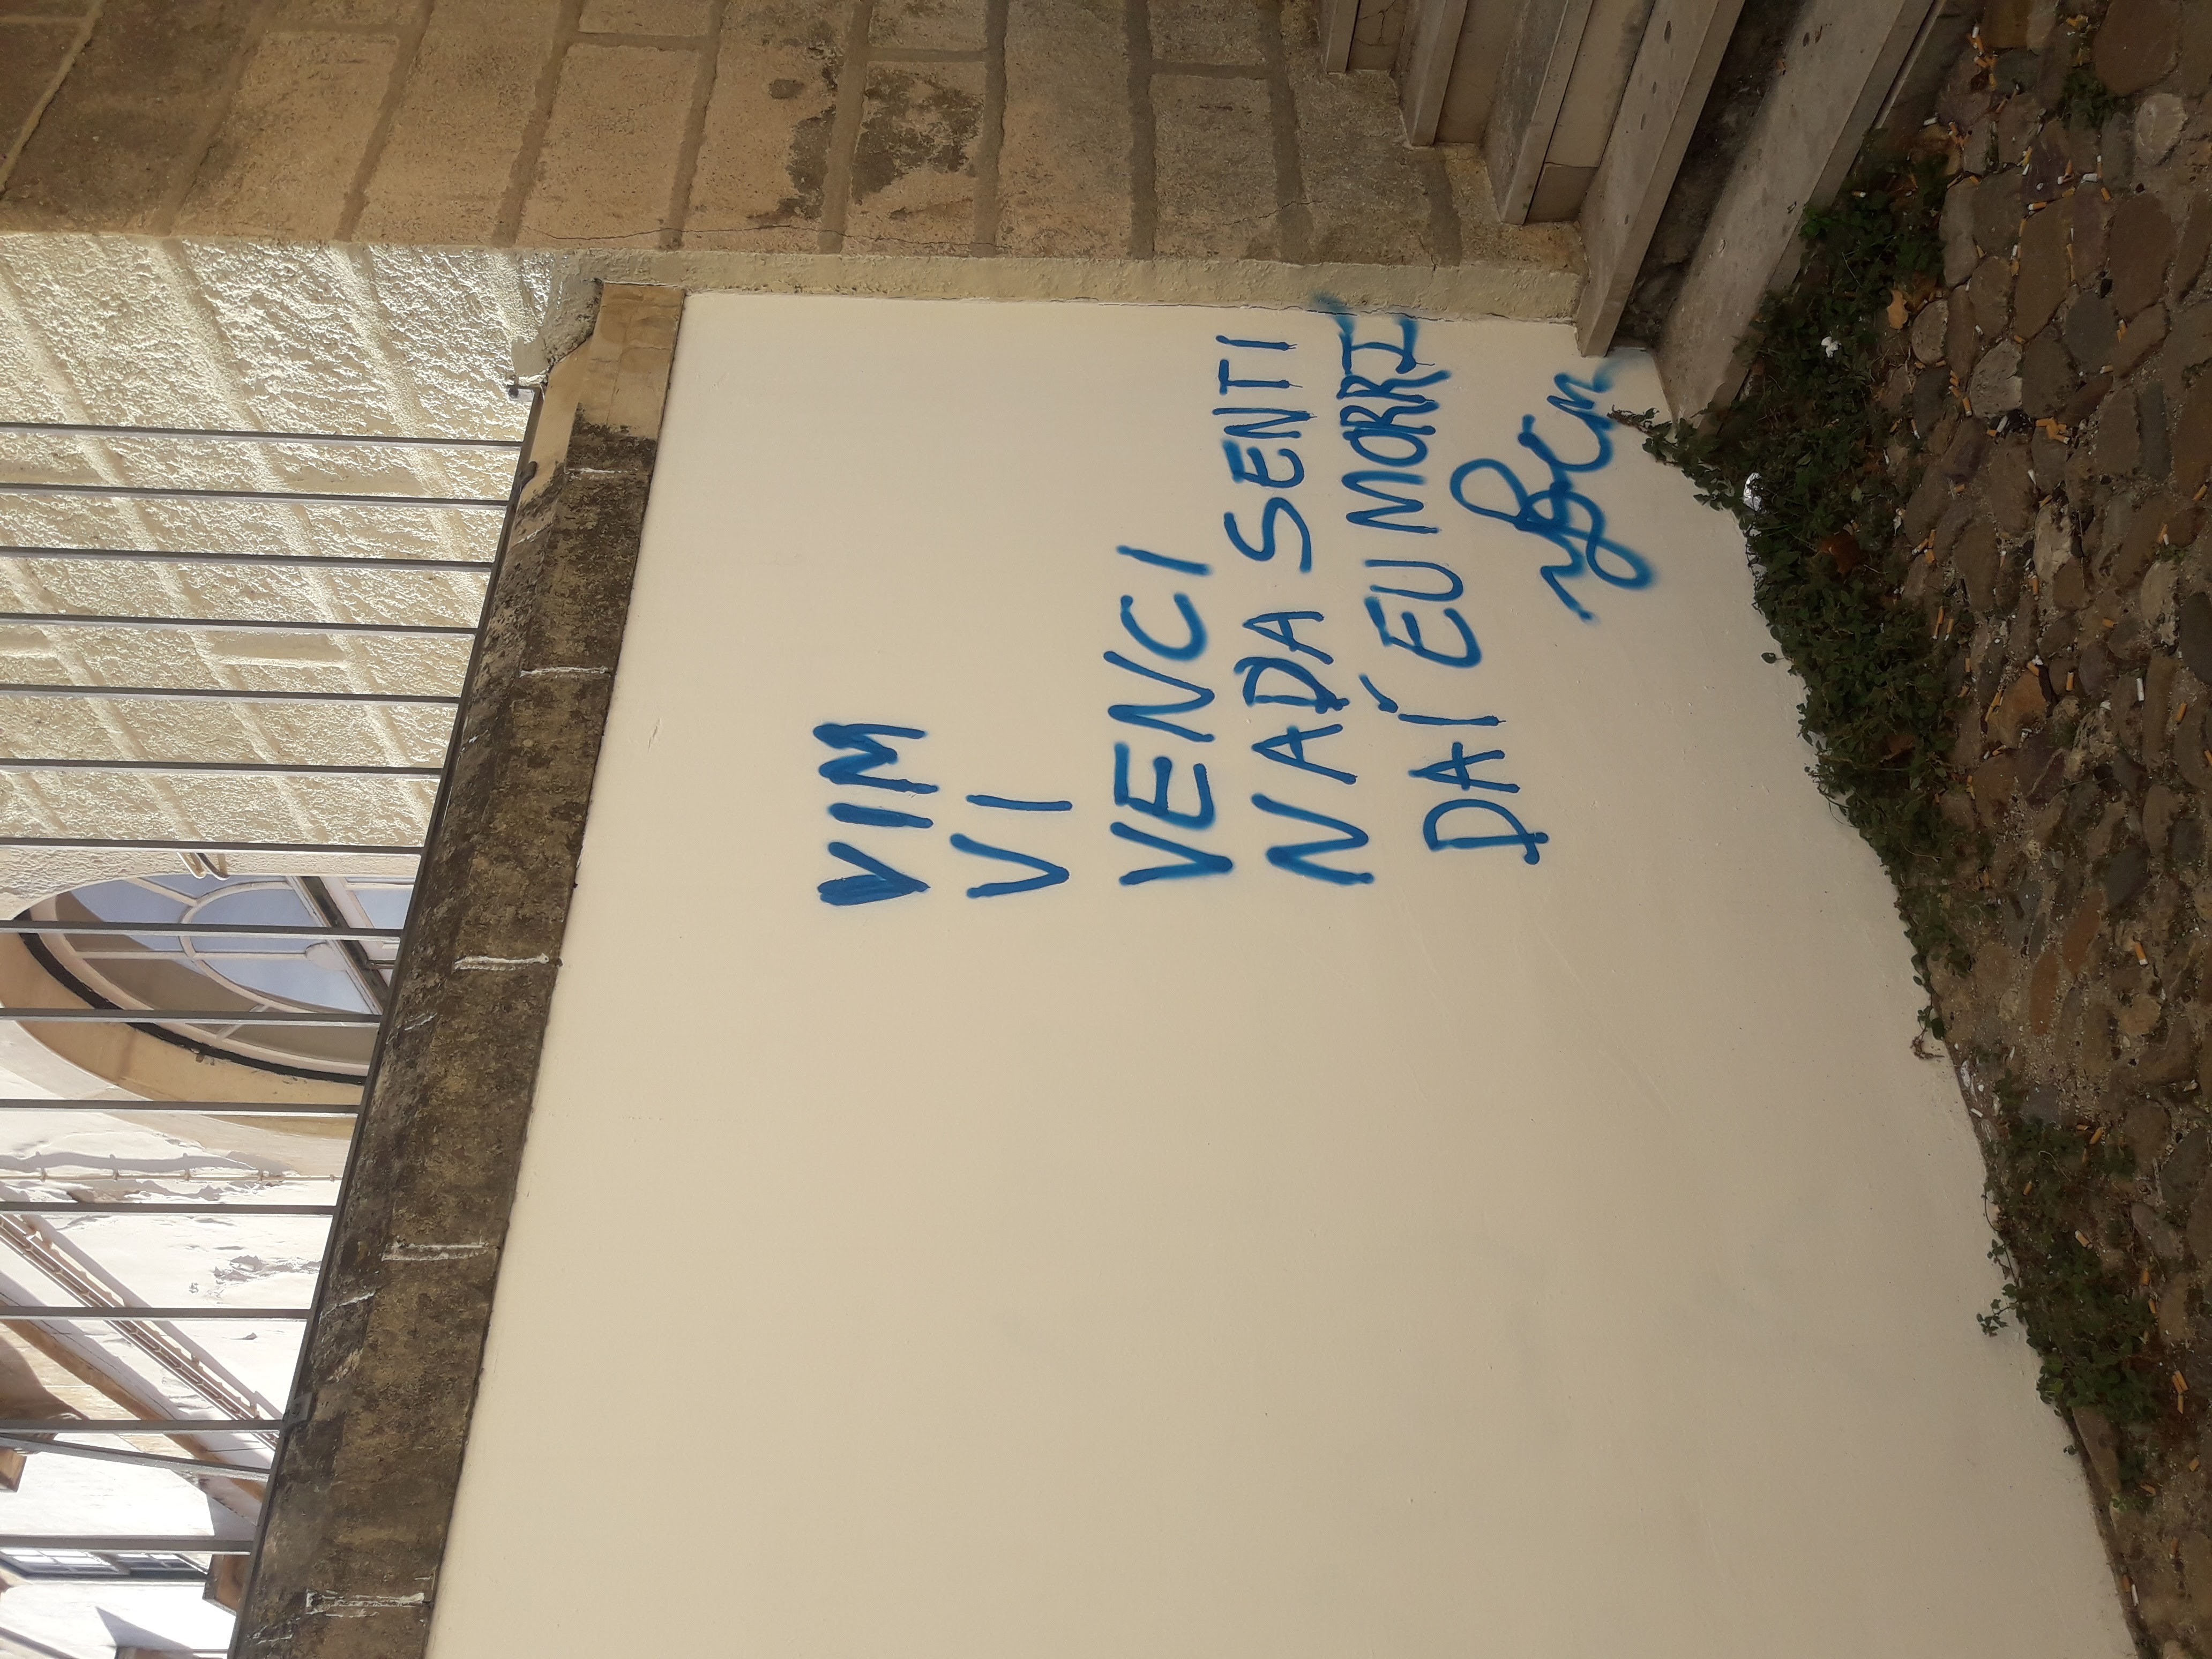 VIM
VI
VENCI
NADA SENTI
DAÍ EU MORRI